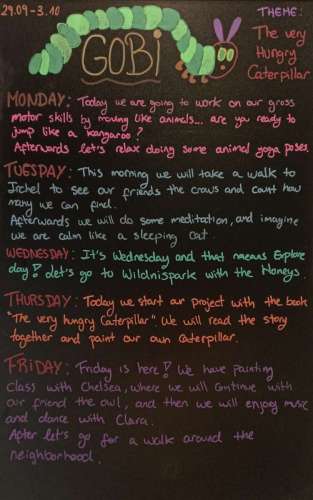 29.09-3.10
THEME:
GOBI
The very
Hungry
Caterpillar.
MONDAY: Today we are going to work on our gross
motor skills by moving like animals... are you ready to
jump like a kangaroo?
Afterwards let's relax doing some animal yoga poses.
TUESDAY: This morning we will take a walk to
Irchel to see our friends the crows and count how
many we can find.
Afterwards we will do some meditation, and imagine
we are calm like a sleeping cat.
WEDNESDAY: It's Wednesday and that means Explore
day! Let's go to Wildnispark with the Honeys.
THURSDAY: Today we start our project with the book
"The very hungry Caterpillar". We will read the story
together and paint our own Caterpillar.
FRIDAY: Friday is here! We have painting
class with Chelsea, where we will continue with
our friend the owl, and then we will enjoy music
and dance with Clara.
After let's go for a walk around the
neighborhood.